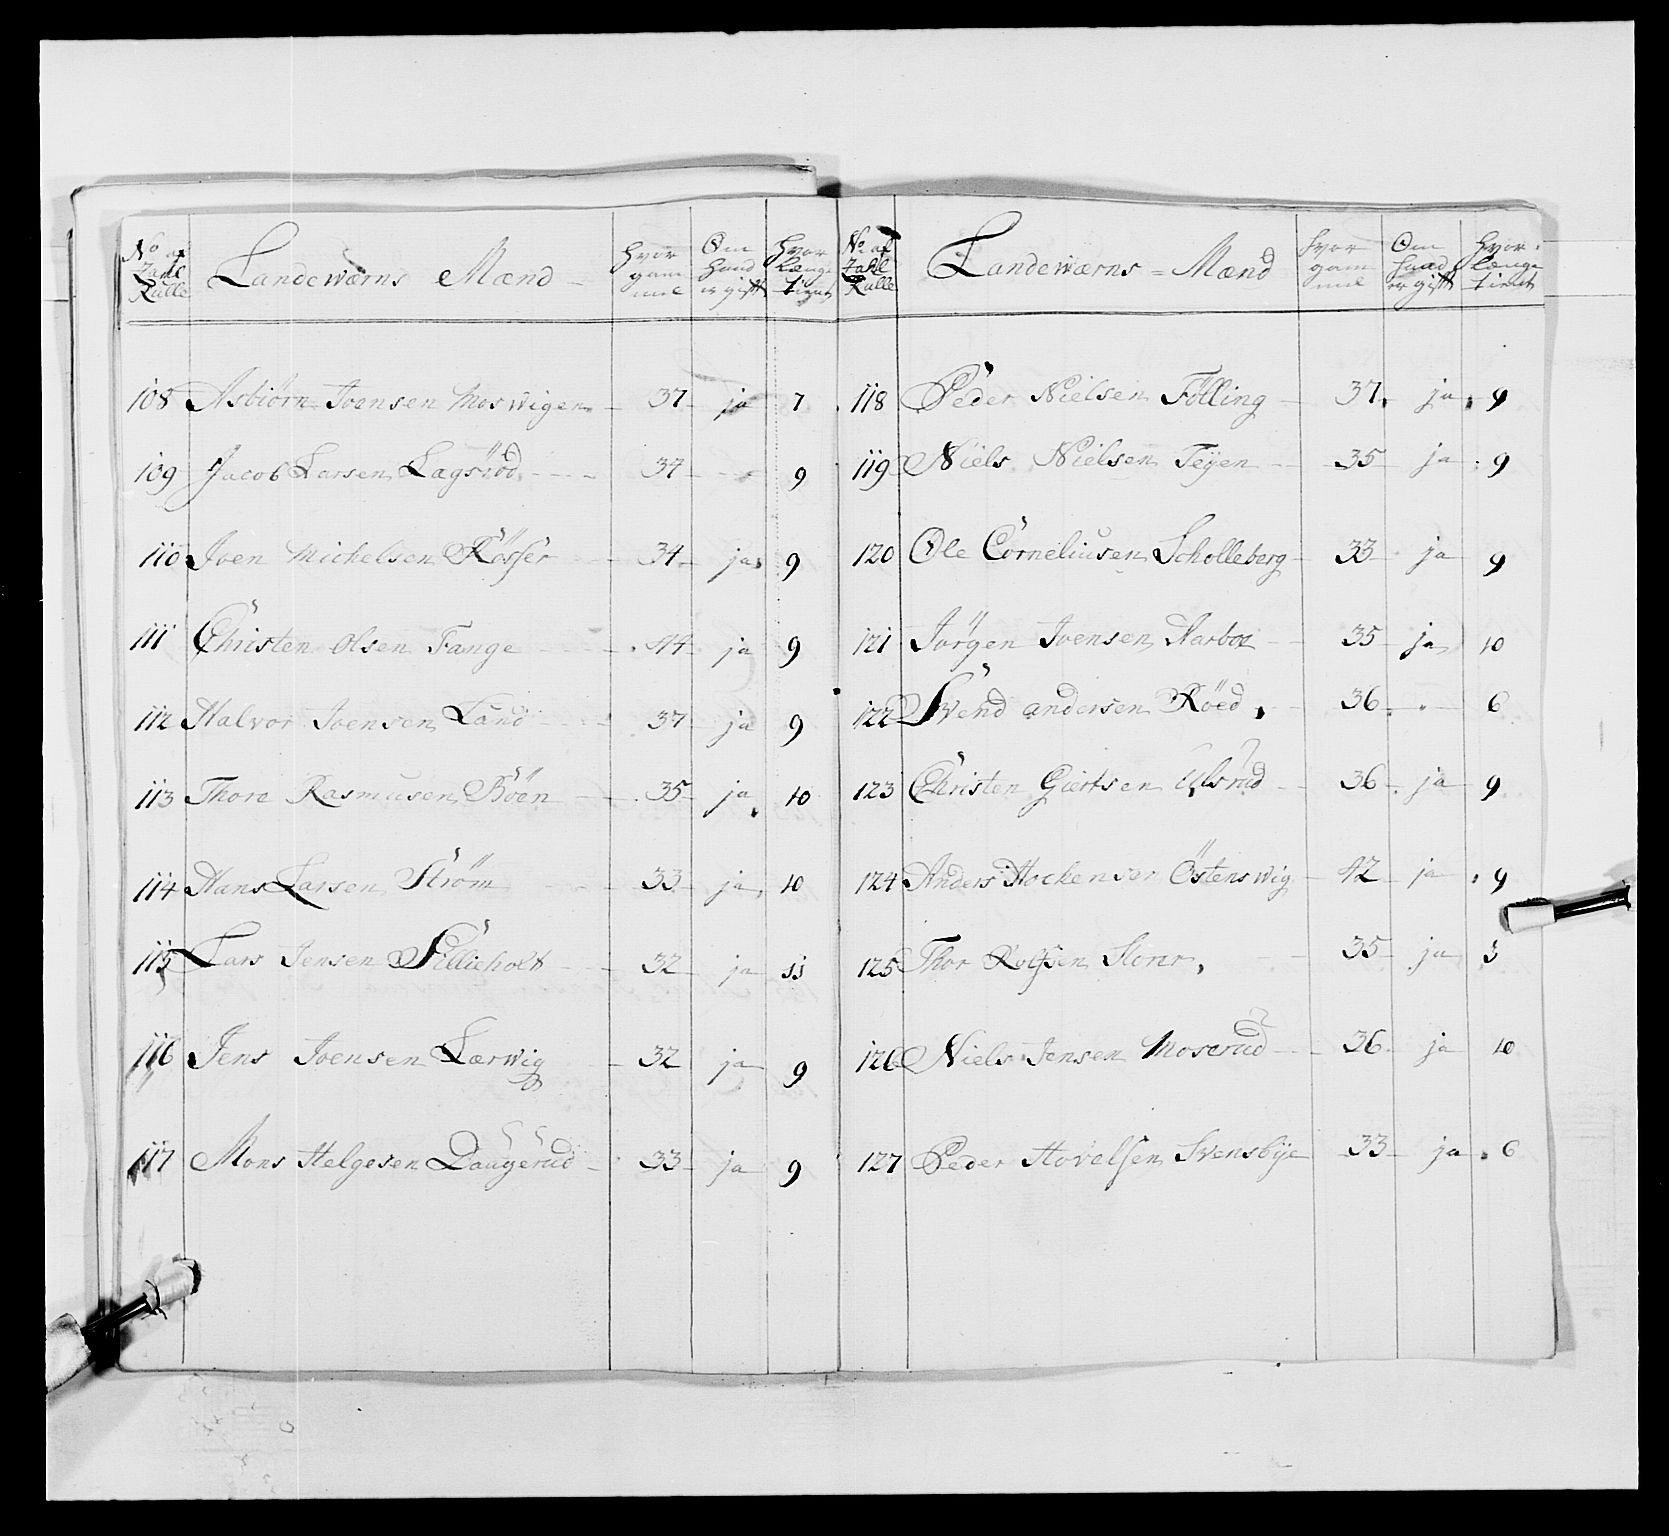 No af Zahl Rulle | Landewærns Mænd | Hvor gam mel | Om hand er gift | Hvor længe tient
108 Asbiørn Joensen Moswigen 37 ja 7
109 Jacob Larsen Lagsröd 37 - 9
110 Joen Michelsen Rösser 34 ja 9
111 Christen Olsen Fange 44 ja 9
112 Halvor Joensen Land 37 ja 9
113 Thore Rasmusen Böen 35 ja 10
114 Hans Larsen Ström 33 ja 10
115 Lars Jensen Sillieholt 32 ja 11
116 Jens Joensen Lærwig 32 ja 9
117 Mons Helgesen Daugerud 33 ja 9
No af Zahl Rulle | Landewærns-Mænd | Hvor gam mel | Om hand er gift | Hvor længe tient
118 Peder Nielsen Fölling 37 ja 9
119 Niels Nielsen Teÿen 35 ja 9
120 Ole Corneliusen Scholleberg 33 ja 9
121 Jörgen Joensen Harboe 35 ja 10
122 Svend Andersen Röed 36 - 6
123 Christen Giertsen Ulsrud 36 ja 9
124 Anders Hockensen Östenswig 42 ja 9
125 Thor Rolfsen 35 ja
126 Niels Jensen Moserud 36 ja 10
127 Peder Hovelsen Svensbÿe 33 ja 6